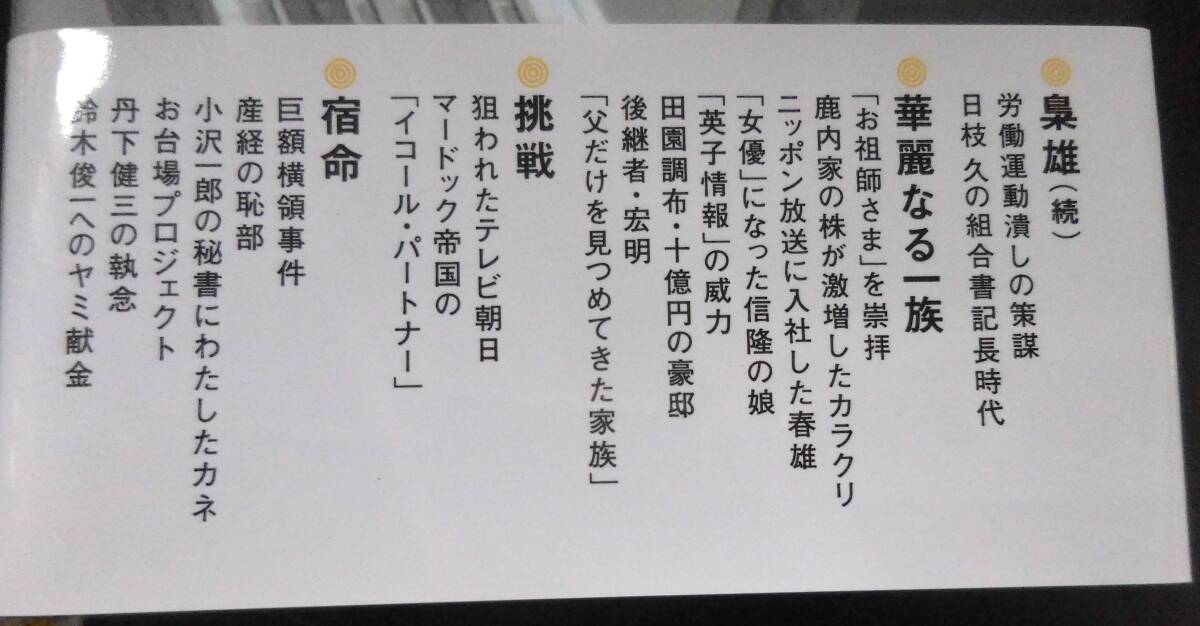 梟雄(続)
労働運動潰しの策謀
日枝 久の組合書記長時代
華麗なる一族
「お祖師さま」を崇拝
鹿内家の株が激増したカラクリ
ニッポン放送に入社した春雄
「女優」になった信隆の娘
「英子情報」の威力
田園調布・十億円の豪邸
後継者・宏明
「父だけを見つめてきた家族」
挑戦
狙われたテレビ朝日
マードック帝国の
「イコール・パートナー」
宿命
巨額横領事件
産経の恥部
小沢一郎の秘書にわたしたカネ
お台場プロジェクト
丹下健三の執念
鈴木俊一へのヤミ献金